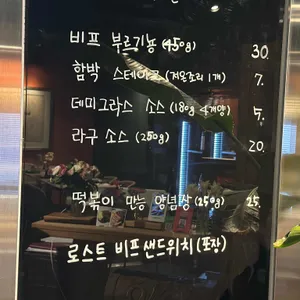 비프 부르기뇽 (450g) 30.
함박 스테이크 (저온조리 1개) 7.
데미그라스 소스 (180g 4개양) 5.
라구 소스 (250g) 20.
떡볶이 만능 양념장 (250g) 25.
로스트 비프 샌드위치 (포장)